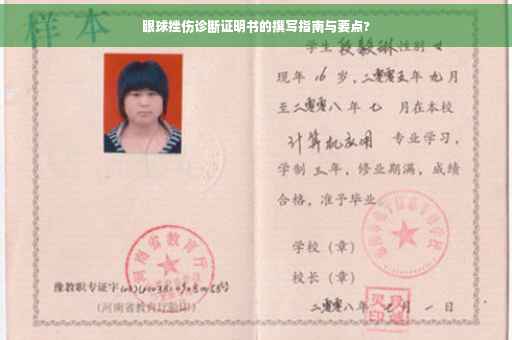 眼球挫伤诊断证明书的撰写指南与要点?
样本
学生段毅琳性别 女
现年 16 岁，二零零五年 九 月
至二零零八年 七 月在本校
计算机应用 专业学习，
学制 三 年，修业期满，成绩
合格，准予毕业
学校（章）
校长（章）
二零零八年 七 月 一 日
河南省教育厅
豫教职专证字
（河南省教育厅验印）